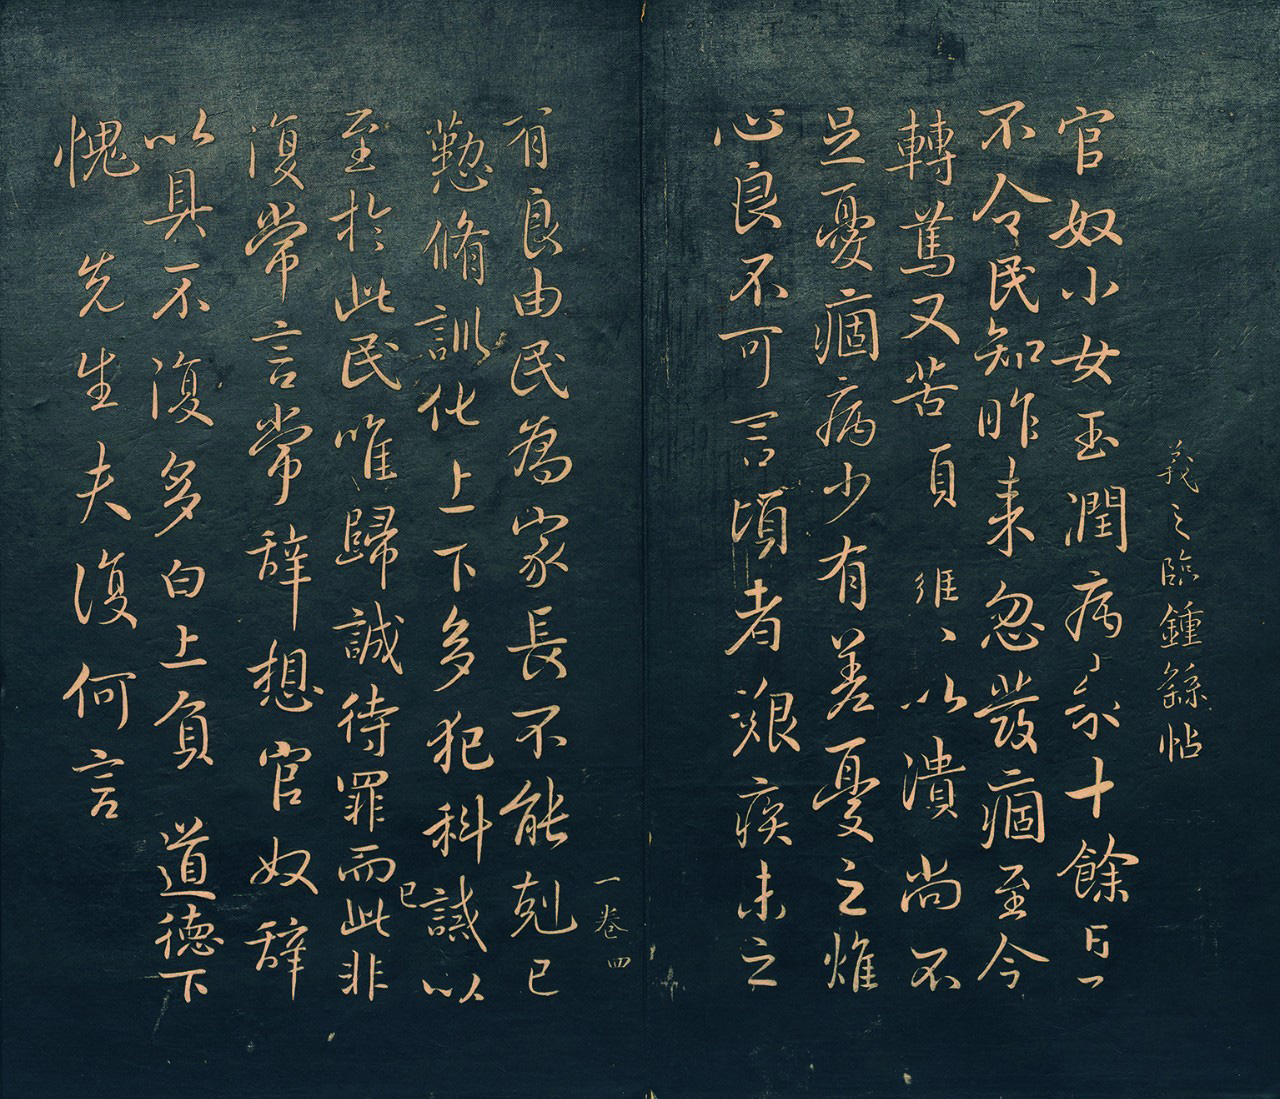 羲之臨鍾繇帖
官奴小女玉潤病來十餘日
不令民知昨來忽發痼至今
轉篤又苦頁以潰尚不
足憂痼病少有差憂之燋
心良不可言頃者艱疾未之
一卷四
有良由民為家長不能剋己
懃脩訓化上下多犯科誡以
至於此民唯歸誠待罪而已此非
復常言常辭想官奴辭
以具不復多白上負 道德下
愧 先生夫復何言